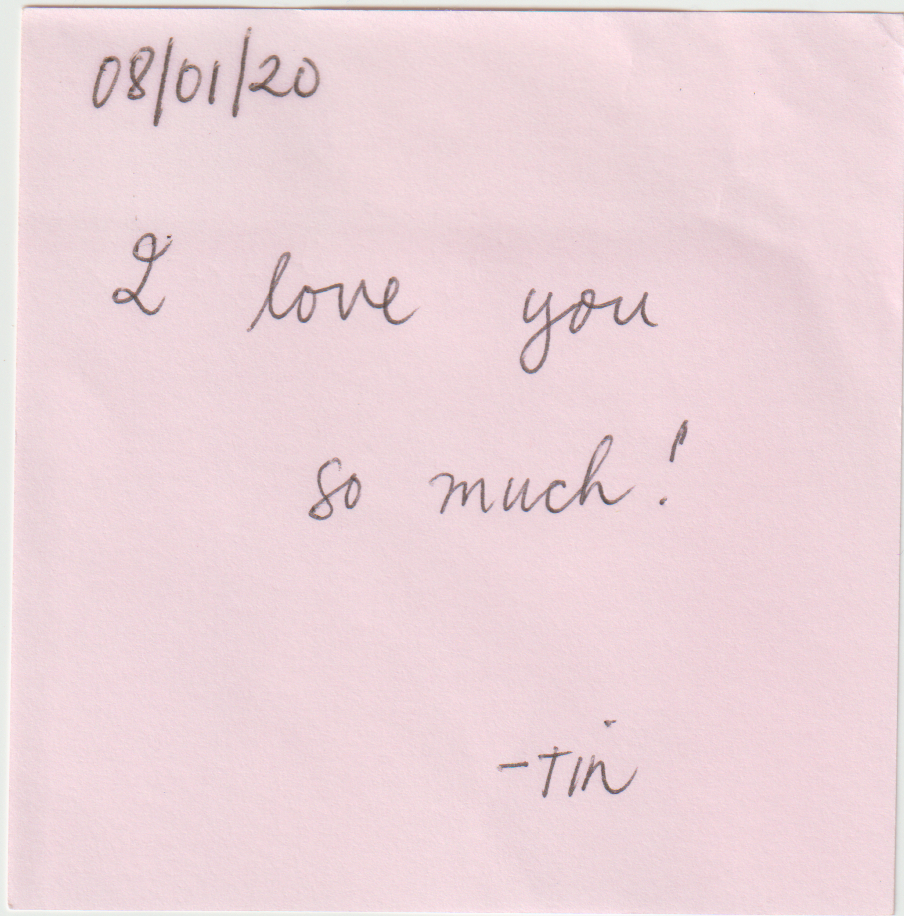 08/01/20
I love you
so much!
-Tin